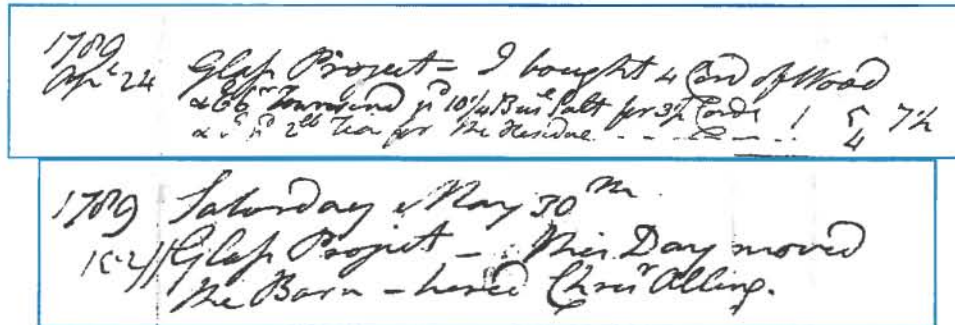 1789
Apl 24 Glaſs Project – I bought 4 Cord of Wood
Townsend pd 10 1/4 Bus Salt for 3 1/2 Cords 1 5 7 1/2
pd 2lb Tea for the Residue 4
1789 Saturday May 30th
Glaſs Project – This Day moved
the Barn – hired Chrisr Alling.